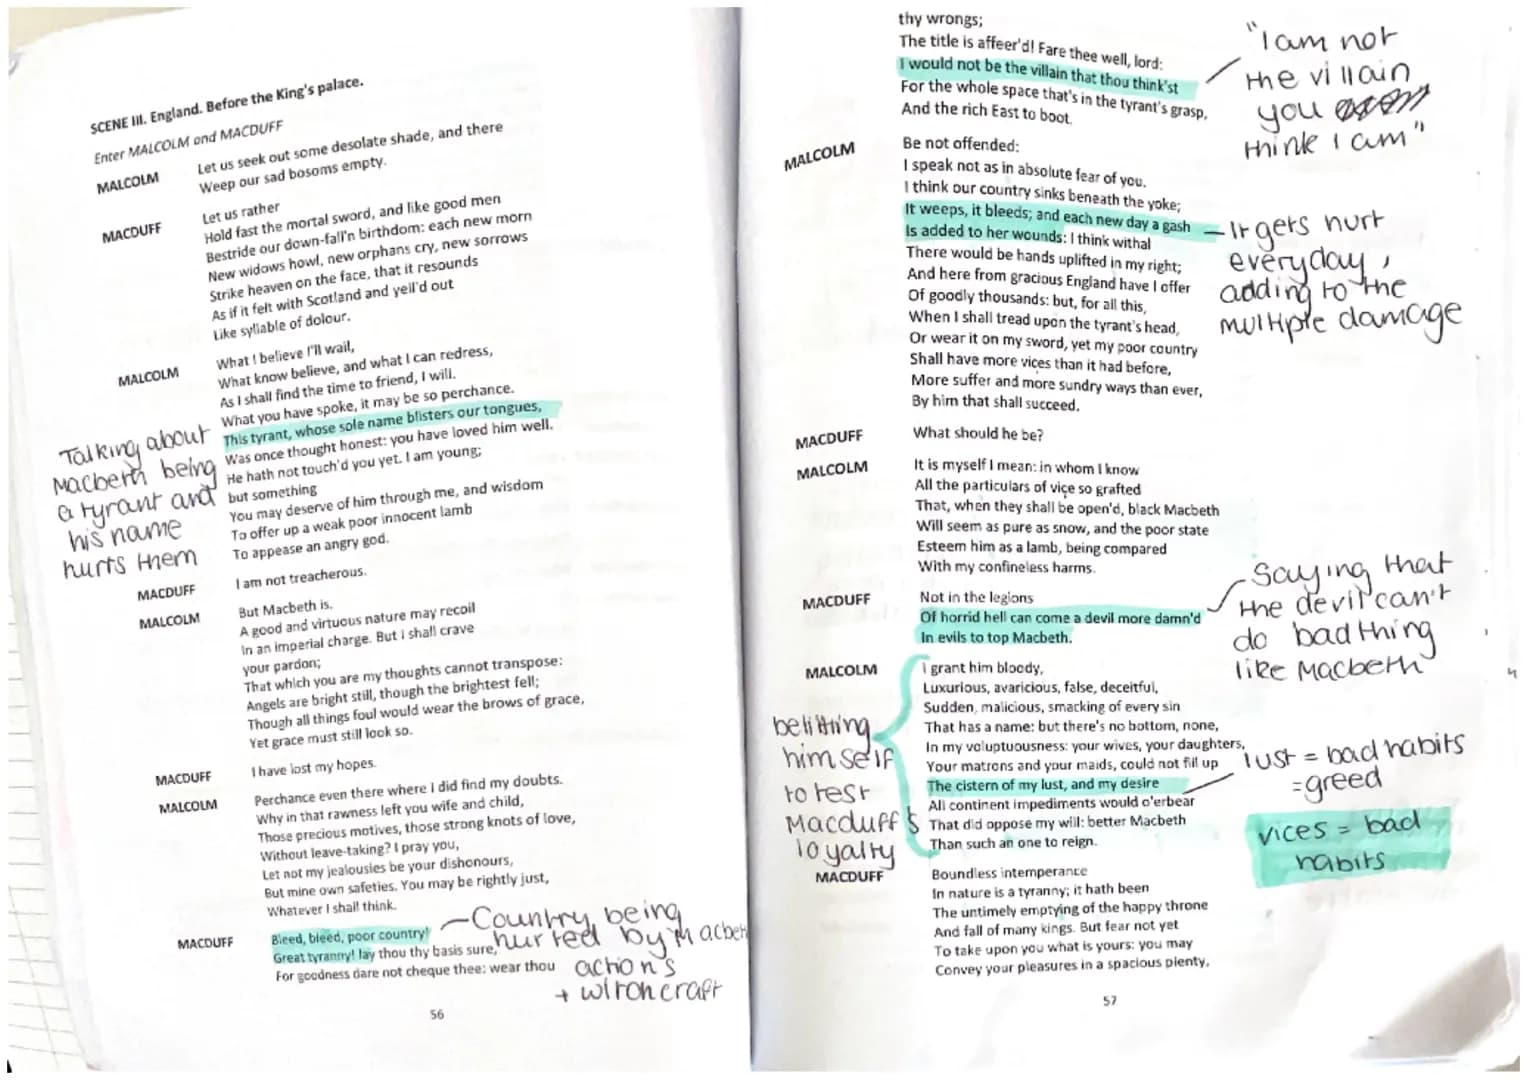 SCENE III. England. Before the King's palace.
Enter MALCOLM and MACDUFF
MALCOLM Let us seek out some desolate shade, and there
Weep our sad bosoms empty.
MACDUFF Let us rather
Hold fast the mortal sword, and like good men
Bestride our down-fall'n birthdom: each new morn
New widows howl, new orphans cry, new sorrows
Strike heaven on the face, that it resounds
As if it felt with Scotland and yell'd out
Like syllable of dolour.
MALCOLM What I believe I'll wail,
What know believe, and what I can redress,
As I shall find the time to friend, I will.
What you have spoke, it may be so perchance.
This tyrant, whose sole name blisters our tongues,
Was once thought honest: you have loved him well.
He hath not touch'd you yet. I am young;
but something
You may deserve of him through me, and wisdom
To offer up a weak poor innocent lamb
To appease an angry god.
Talking about
Macbeth being
a tyrant and
his name
hurts them
MACDUFF I am not treacherous.
MALCOLM But Macbeth is.
A good and virtuous nature may recoil
In an imperial charge. But I shall crave
your pardon;
That which you are my thoughts cannot transpose:
Angels are bright still, though the brightest fell;
Though all things foul would wear the brows of grace,
Yet grace must still look so.
MACDUFF I have lost my hopes.
MALCOLM Perchance even there where I did find my doubts.
Why in that rawness left you wife and child,
Those precious motives, those strong knots of love,
Without leave-taking? I pray you,
Let not my jealousies be your dishonours,
But mine own safeties. You may be rightly just,
Whatever I shall think.
MACDUFF Bleed, bleed, poor country!
Great tyranny! lay thou thy basis sure,
For goodness dare not cheque thee: wear thou
- Country being
hurted by Macbeth
actions
+ witchcraft
56
thy wrongs;
The title is affeer'd! Fare thee well, lord:
I would not be the villain that thou think'st
For the whole space that's in the tyrant's grasp,
And the rich East to boot.
"I am not
the villain
you
think I am"
MALCOLM Be not offended:
I speak not as in absolute fear of you.
I think our country sinks beneath the yoke;
It weeps, it bleeds; and each new day a gash
Is added to her wounds: I think withal
There would be hands uplifted in my right;
And here from gracious England have I offer
Of goodly thousands: but, for all this,
When I shall tread upon the tyrant's head,
Or wear it on my sword, yet my poor country
Shall have more vices than it had before,
More suffer and more sundry ways than ever,
By him that shall succeed.
- It gets hurt
everyday,
adding to the
multiple damage
MACDUFF What should he be?
MALCOLM It is myself I mean: in whom I know
All the particulars of vice so grafted
That, when they shall be open'd, black Macbeth
Will seem as pure as snow, and the poor state
Esteem him as a lamb, being compared
With my confineless harms.
MACDUFF Not in the legions
Of horrid hell can come a devil more damn'd
In evils to top Macbeth.
Saying that
the devil can't
do bad thing
like Macbeth
MALCOLM I grant him bloody,
Luxurious, avaricious, false, deceitful,
Sudden, malicious, smacking of every sin
That has a name: but there's no bottom, none,
In my voluptuousness: your wives, your daughters,
Your matrons and your maids, could not fill up
The cistern of my lust, and my desire
All continent impediments would o'erbear
That did oppose my will: better Macbeth
Than such an one to reign.
belitting
himself
to test
Macduff's
loyalty
lust = bad habits
=greed
vices = bad
habits
MACDUFF Boundless intemperance
In nature is a tyranny; it hath been
The untimely emptying of the happy throne
And fall of many kings. But fear not yet
To take upon you what is yours: you may
Convey your pleasures in a spacious plenty,
57